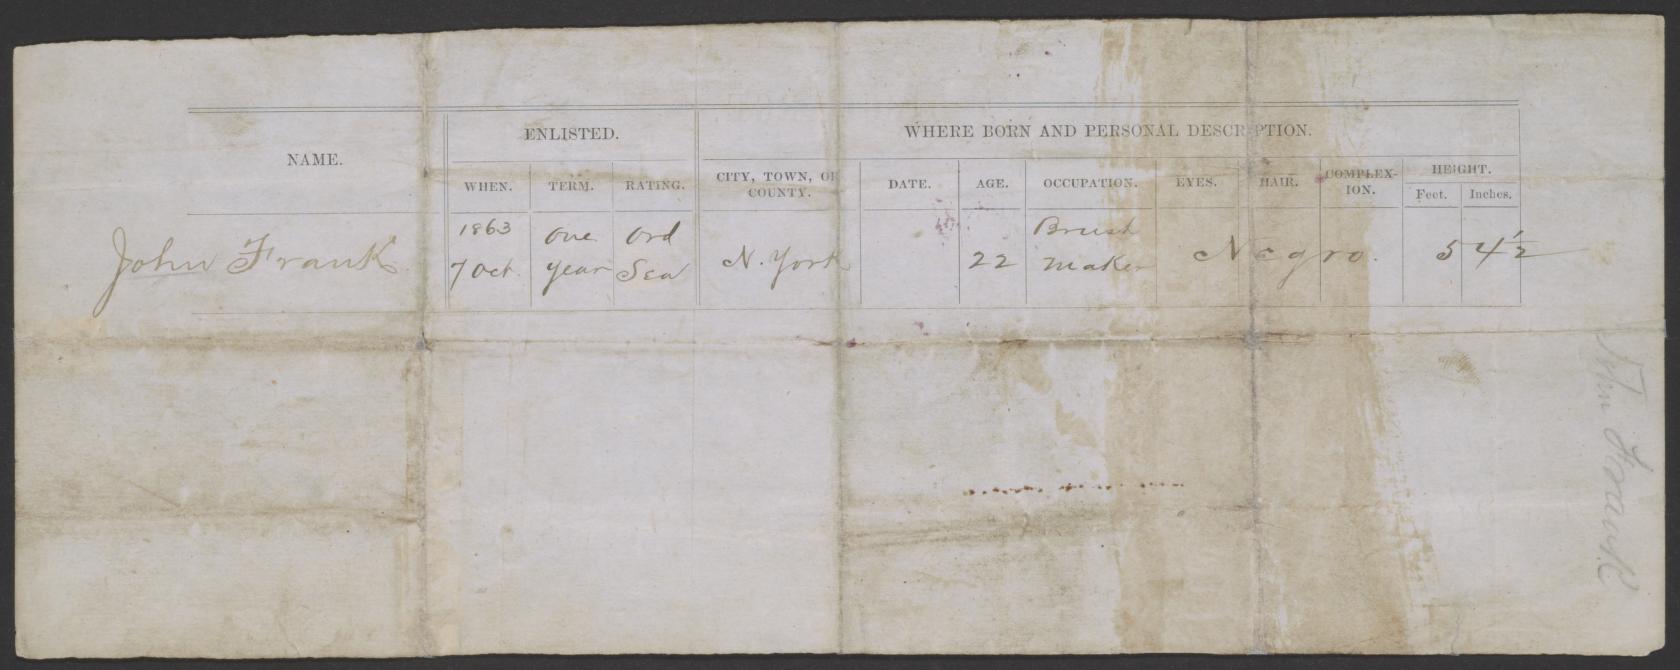 NAME.
ENLISTED.
WHERE BORN AND PERSONAL DESCRIPTION.
WHEN.
TERM.
RATING.
CITY, TOWN, OR
COUNTY.
DATE.
AGE.
OCCUPATION.
EYES.
HAIR.
COMPLEX-
ION.
HEIGHT.
Feet.
Inches.
John Frank
1863
7 Oct.
One
year
Ord
Sea
N. York
22
Brush
maker
Negro.
5
4½
John Frank